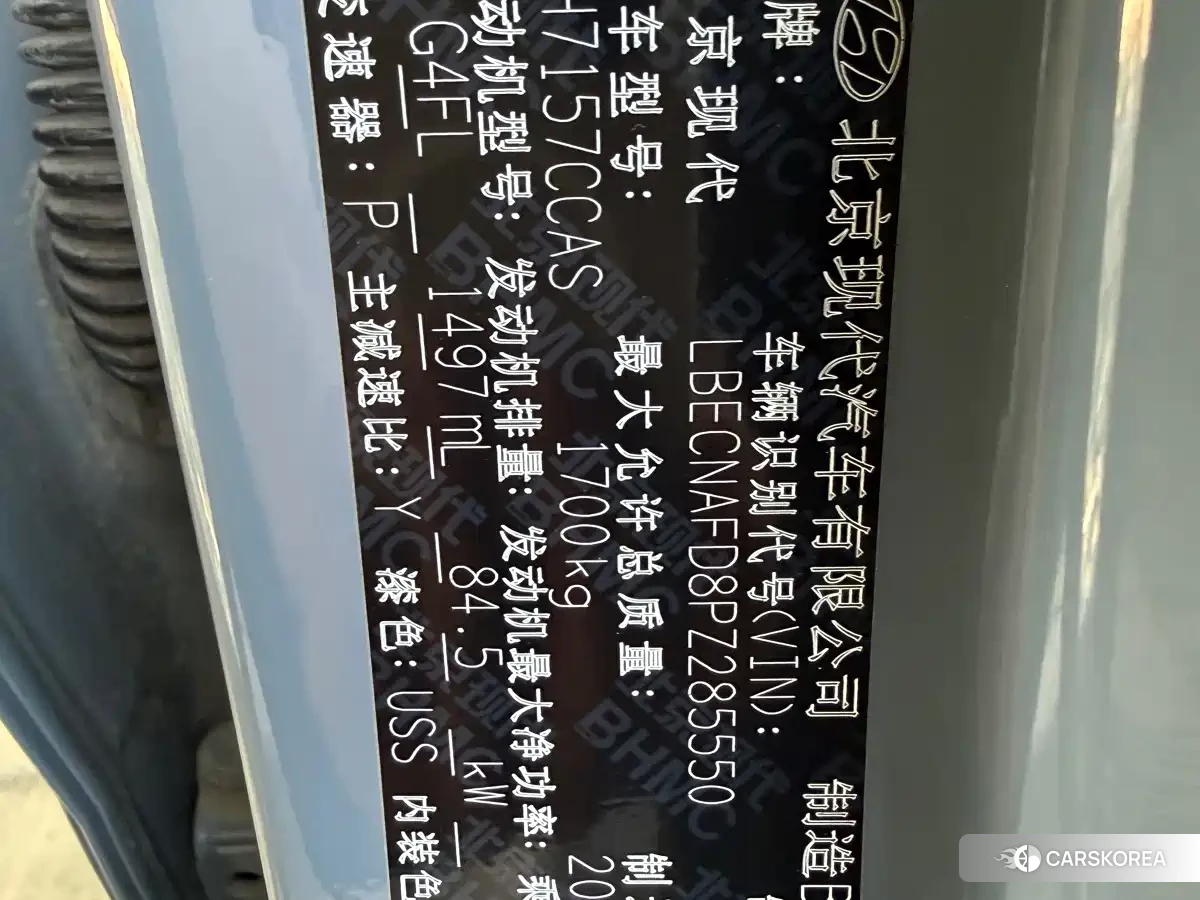 北京现代汽车有限公司 制造
牌: 车辆识别代号(VIN):
京现代 LBECNAFD8PZ285550
车型号: 最大允许总质量: 制
H7157CCAS 1700kg 20
动机型号: 发动机排量: 发动机最大净功率: 乘
G4FL 1497mL 84.5 kW
变速器: P 主减速比: Y 漆色: USS 内装色
CARSKOREA